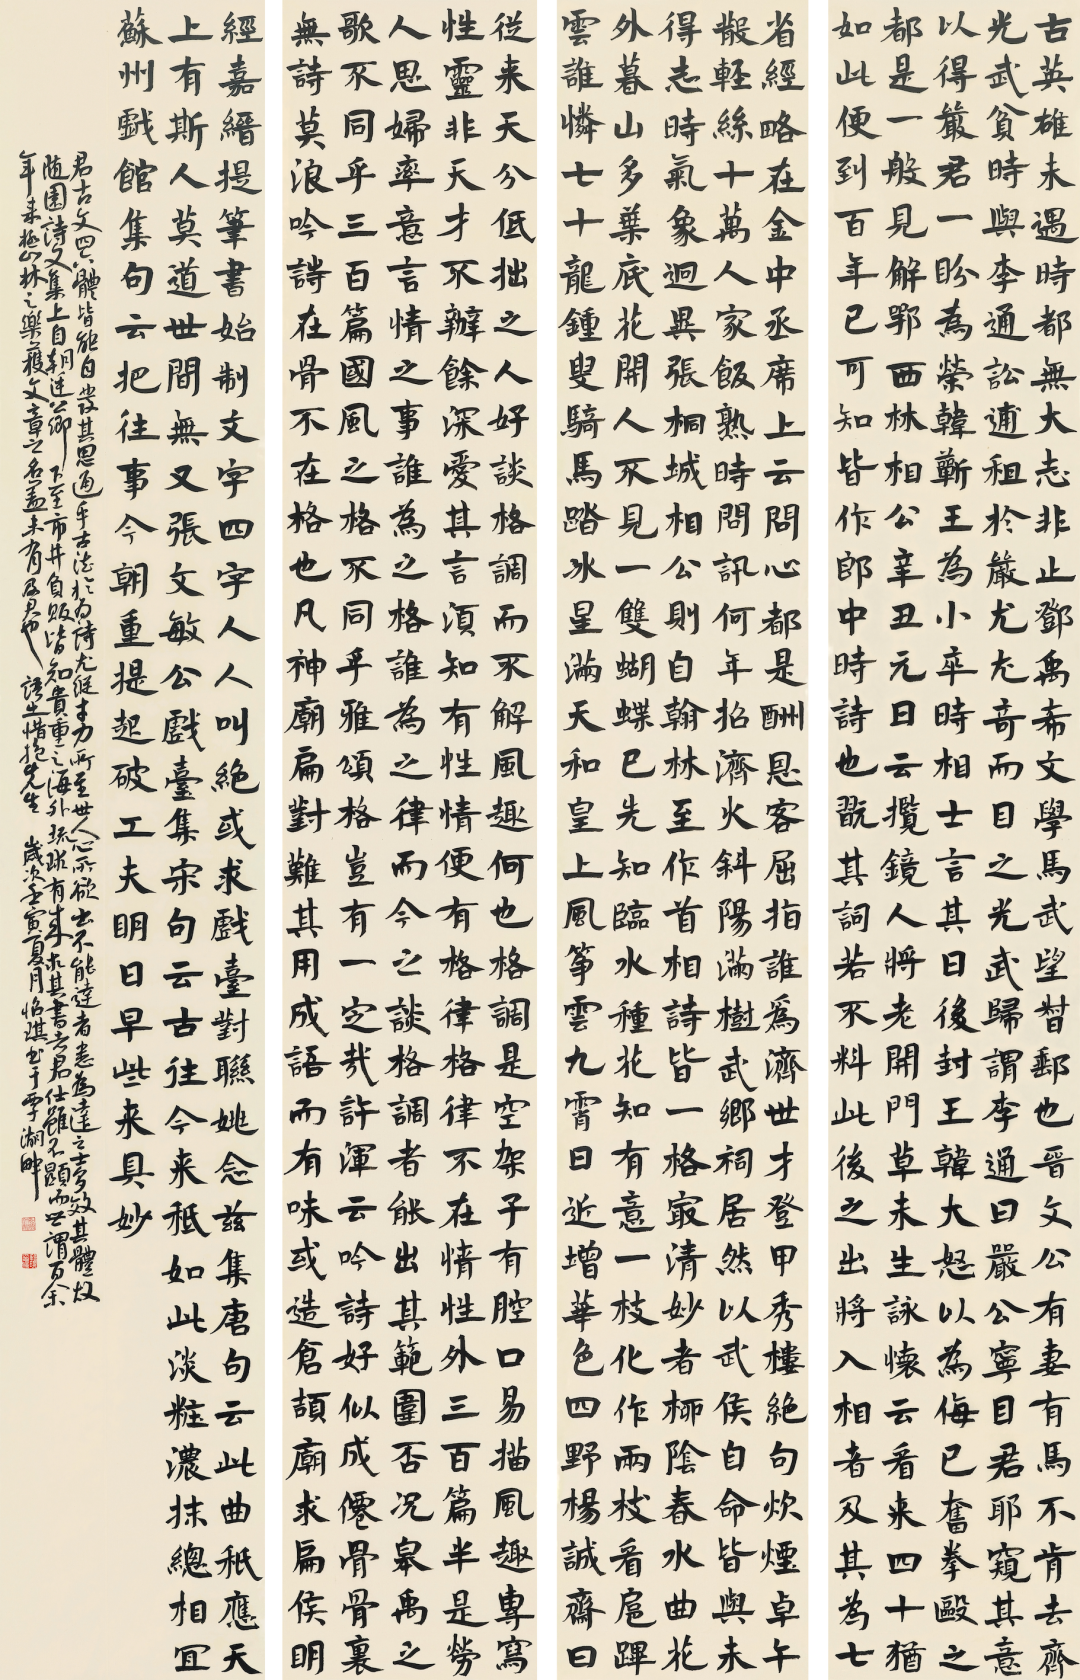 古英雄未遇時都無大志非止鄧禹希文學馬武望督郵也晉文公有妻有馬不肯去齊
光武貧時與李通訟逋租於嚴尤尤奇而目之光武歸謂李通曰嚴公寧目君耶窺其意
以得嚴君一盼為榮韓蘄王為小卒時相士言其日後封王韓大怒以為侮己奮拳毆之
都是一般見解鄂西林相公辛丑元日云攬鏡人將老開門草未生詠懷云看來四十猶
如此便到百年已可知皆作郎中時詩也翫其詞若不料此後之出將入相者及其為七
省經略在金中丞席上云問心都是酬恩客屈指誰為濟世才登甲秀樓絕句炊煙卓午
散輕絲十萬人家飯熟時問訊何年招濟火斜陽滿樹武鄉祠居然以武侯自命皆與未
得志時氣象迥異張桐城相公則自翰林至作首相詩皆一格最清妙者柳陰春水曲花
外暮山多葉底花開人不見一雙蝴蝶已先知臨水種花知有意一枝化作兩枝看扈蹕
雲誰憐七十龍鍾叟騎馬踏冰星滿天和皇上風箏雲九霄日近增華色四野楊誠齋曰
從来天分低拙之人好談格調而不解風趣何也格調是空架子有腔口易描風趣專寫
性靈非天才不辦餘深愛其言須知有性情便有格律格律不在情性外三百篇半是勞
人思婦率意言情之事誰為之格誰為之律而今之談格調者能出其範圍否況皋禹之
歌不同乎三百篇國風之格不同乎雅頌格豈有一定哉許渾云吟詩好似成僊骨骨裏
無詩莫浪吟詩在骨不在格也凡神廟扁對難其用成語而有味或造倉頡廟求扁侯明
經嘉縉提筆書始制文字四字人人叫絕或求戲臺對聯姚念茲集唐句云此曲秖應天
上有斯人莫道世間無又張文敏公戲臺集宋句云古往今来秖如此淡粧濃抹總相宜
蘇州戲館集句云把往事今朝重提起破工夫明日早些来具妙
君古文四六體皆能自發其思通乎古法於為詩尤縱才力所至世人心所欲出不能達者悉為達之士多效其體故
随園詩文集上自朝廷公卿下至市井負販皆知貴重之海外琉球有来求其書者君仕雖不顯而世謂百余
年来極山林之樂獲文章之名蓋未有及君也 語出惜抱先生 歲次壬寅夏月怡琪書于湖畔